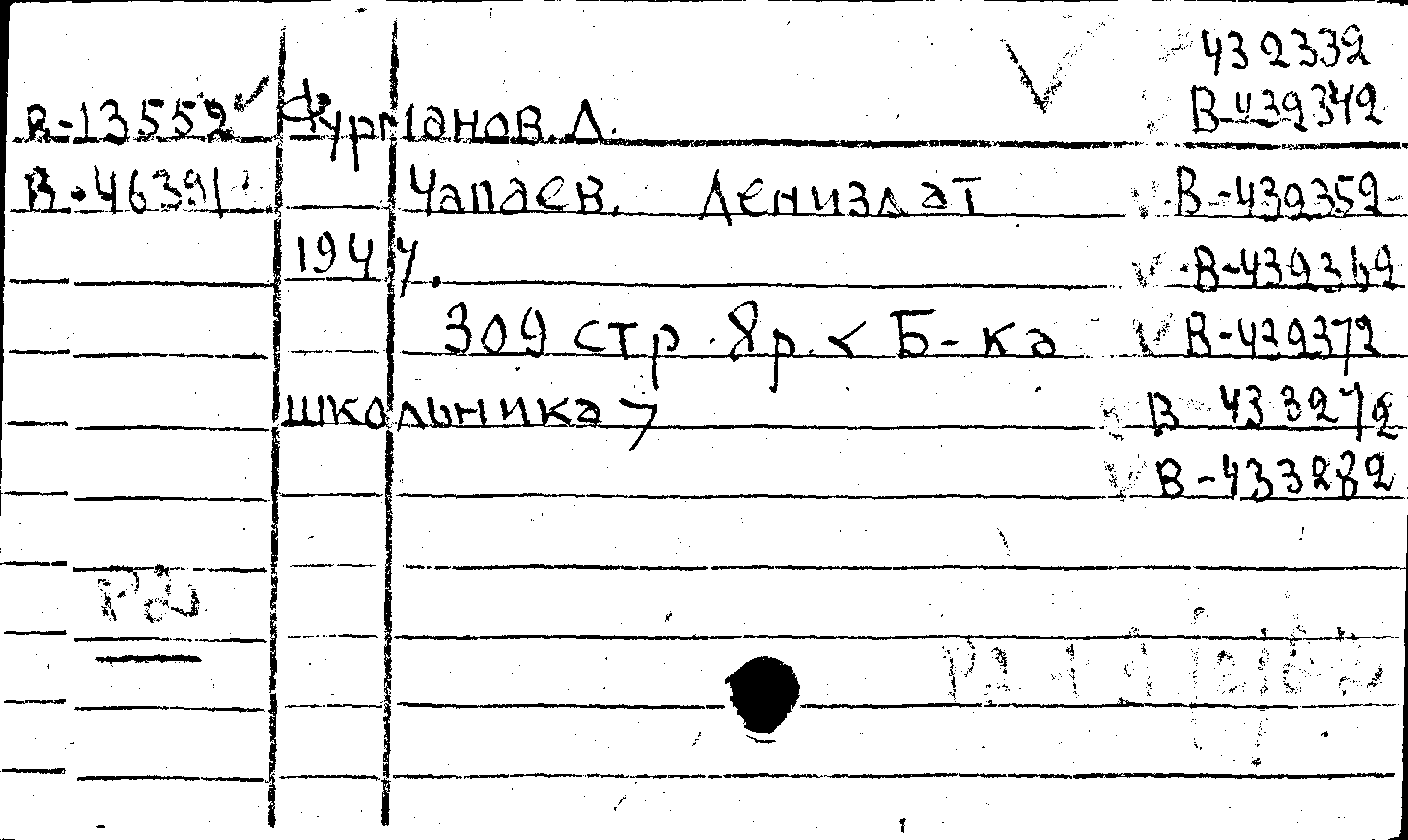 432332
В-13552 Фурманов. Д. В-432342
В-46391 Чапаев. Лениздат В-432352
1947. В-432362
309 стр. Яр. < Б-ка В-432372
школьника > В 433272
В-433282
Р2